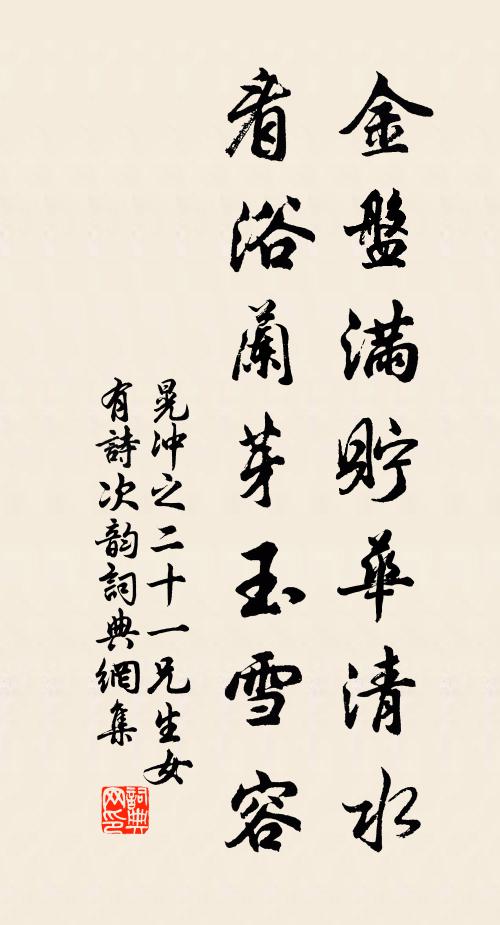 金盤滿貯華清水
看浴蘭芽玉雪容
晃沖之二十一兄生女
有詩次韵詞典網集
詞典网印